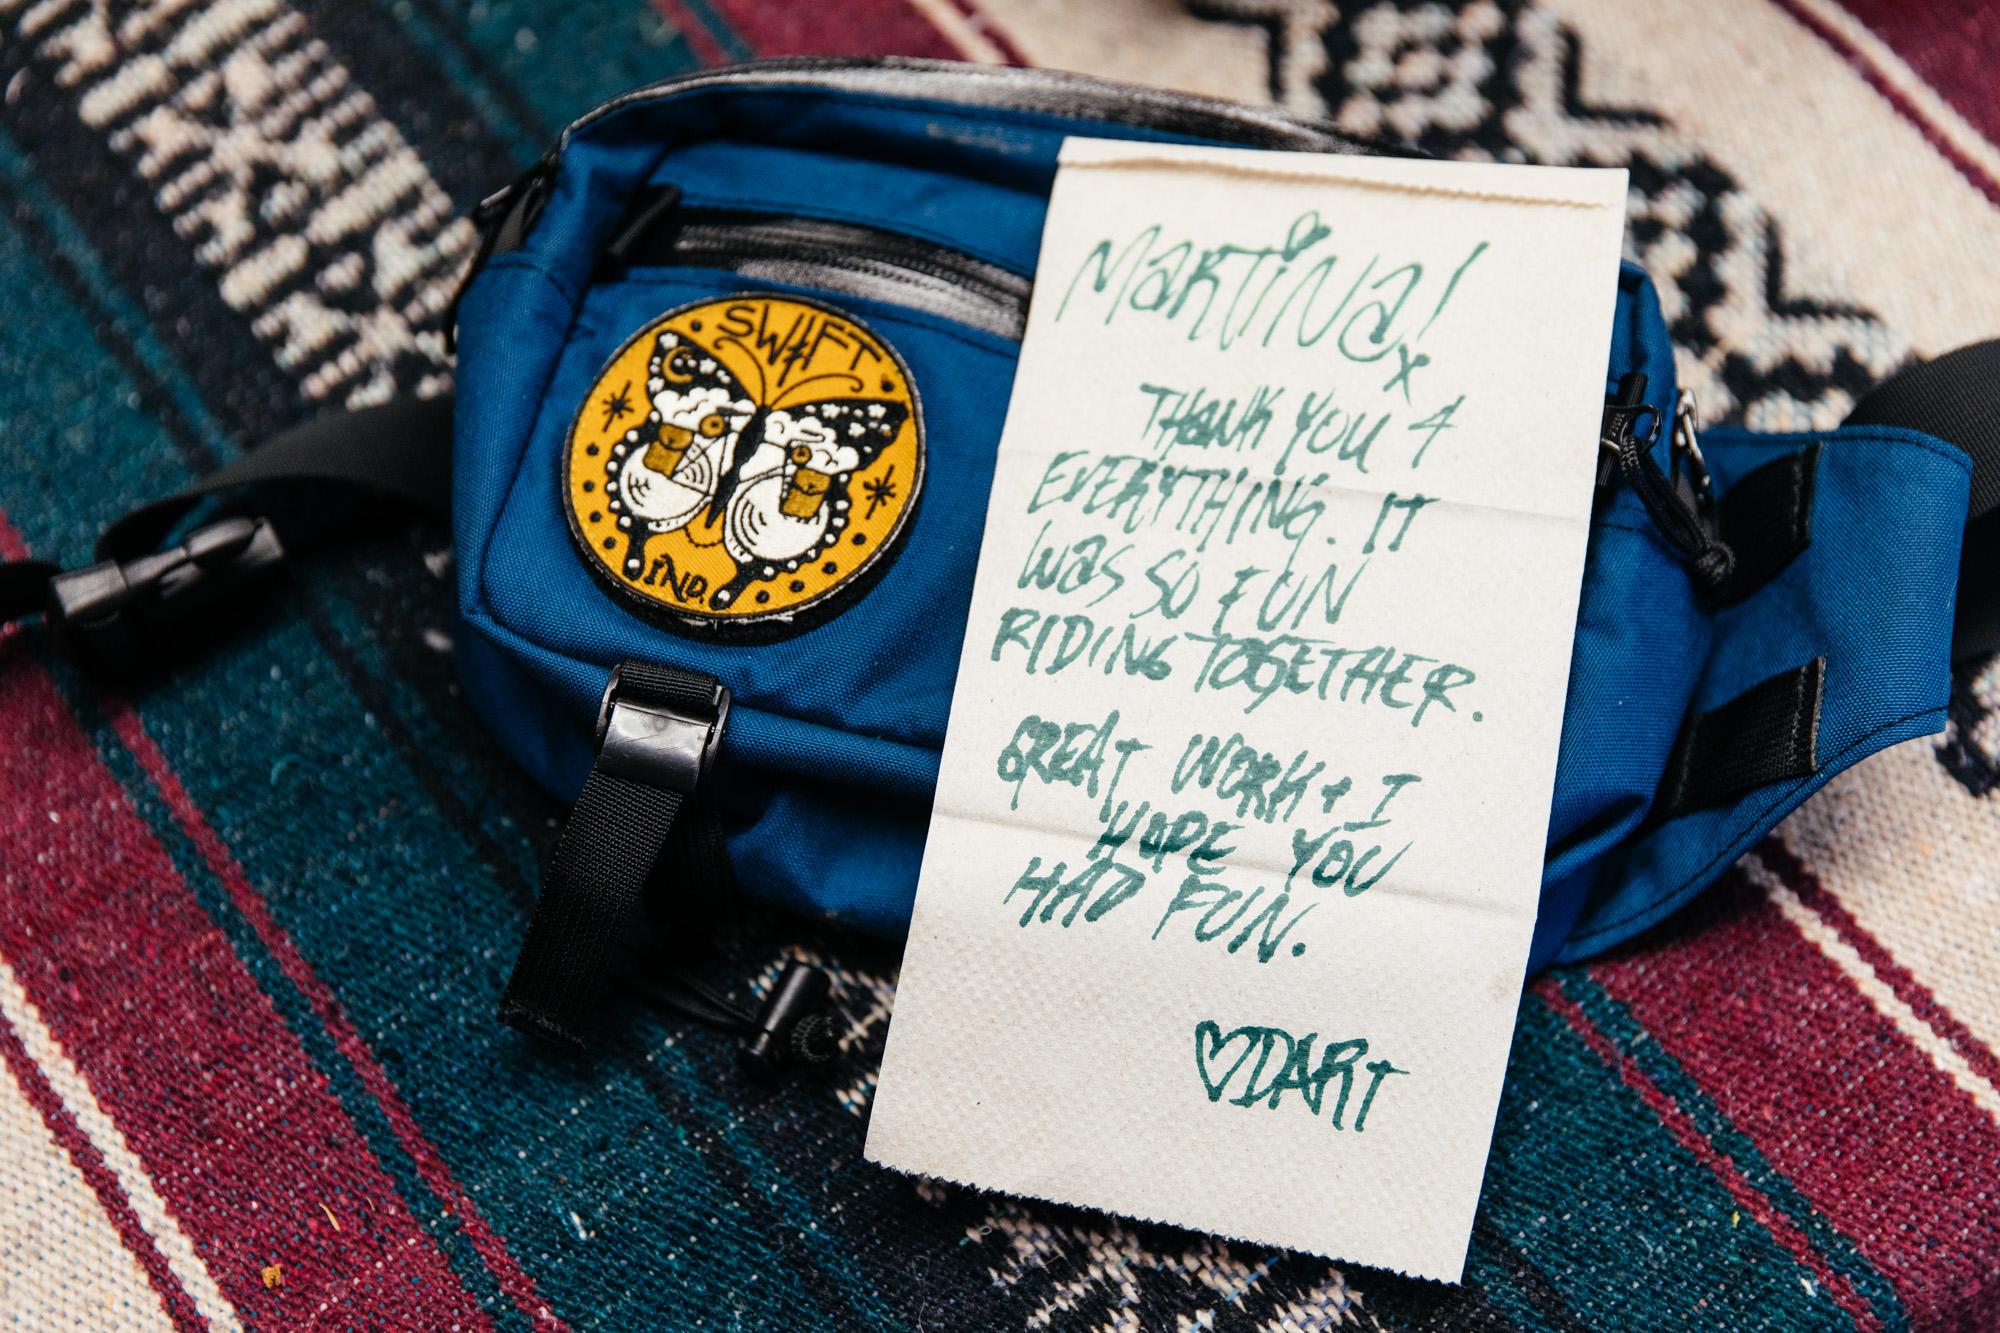 SWIFT
IND.
MARTINA!
x
THANK YOU 4
EVERYTHING. IT
WAS SO FUN
RIDING TOGETHER.
GREAT WORK + I
HOPE YOU
HAD FUN.
♡DART